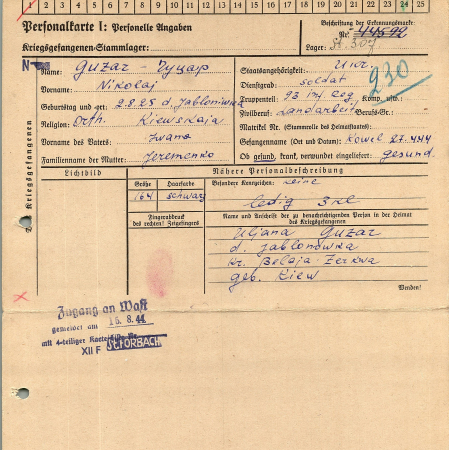 1 2 3 4 5 6 7 8 9 10 11 12 13 14 15 16 17 18 19 20 21 22 23 24 25
Personalkarte I: Personelle Angaben
Kriegsgefangenen-Stammlager:
Beschriftung der Erkennungsmarke
Nr. 44592
Lager: St. 307
Name: Guzar - Гуцар
Vorname: Nikolaj
Geburtstag und -ort: 2.8.25 d. Jabloniwka
Religion: Orth. Kiewskaja
Vorname des Vaters: Iwana
Familienname der Mutter: Jeremenko
Staatsangehörigkeit: Ukr.
Dienstgrad: Soldat
Truppenteil: 93 inf. Reg. Komp. usw.:
230
Zivilberuf: Landarbeit. Berufs-Gr.:
Matrikel Nr. (Stammrolle des Heimatstaates):
Gefangennahme (Ort und Datum): Kowel 27.4.44
Ob gesund, krank, verwundet eingeliefert: gesund
des Kriegsgefangenen
Lichtbild
Nähere Personalbeschreibung
Größe Haarfarbe
164 schwarz
Besondere Kennzeichen: keine
ledig 3 Kl
Fingerabdruck
des rechten! Zeigefingers
Name und Anschrift der zu benachrichtigenden Person in der Heimat
des Kriegsgefangenen
Uljana Guzar
d. Jablonowka
Kr. Belaja-Zerkwa
geb. Kiew
Wenden!
Zugang an Wast
gemeldet am 16. 8. 44
mit 4-teiliger
XII F FORBACH